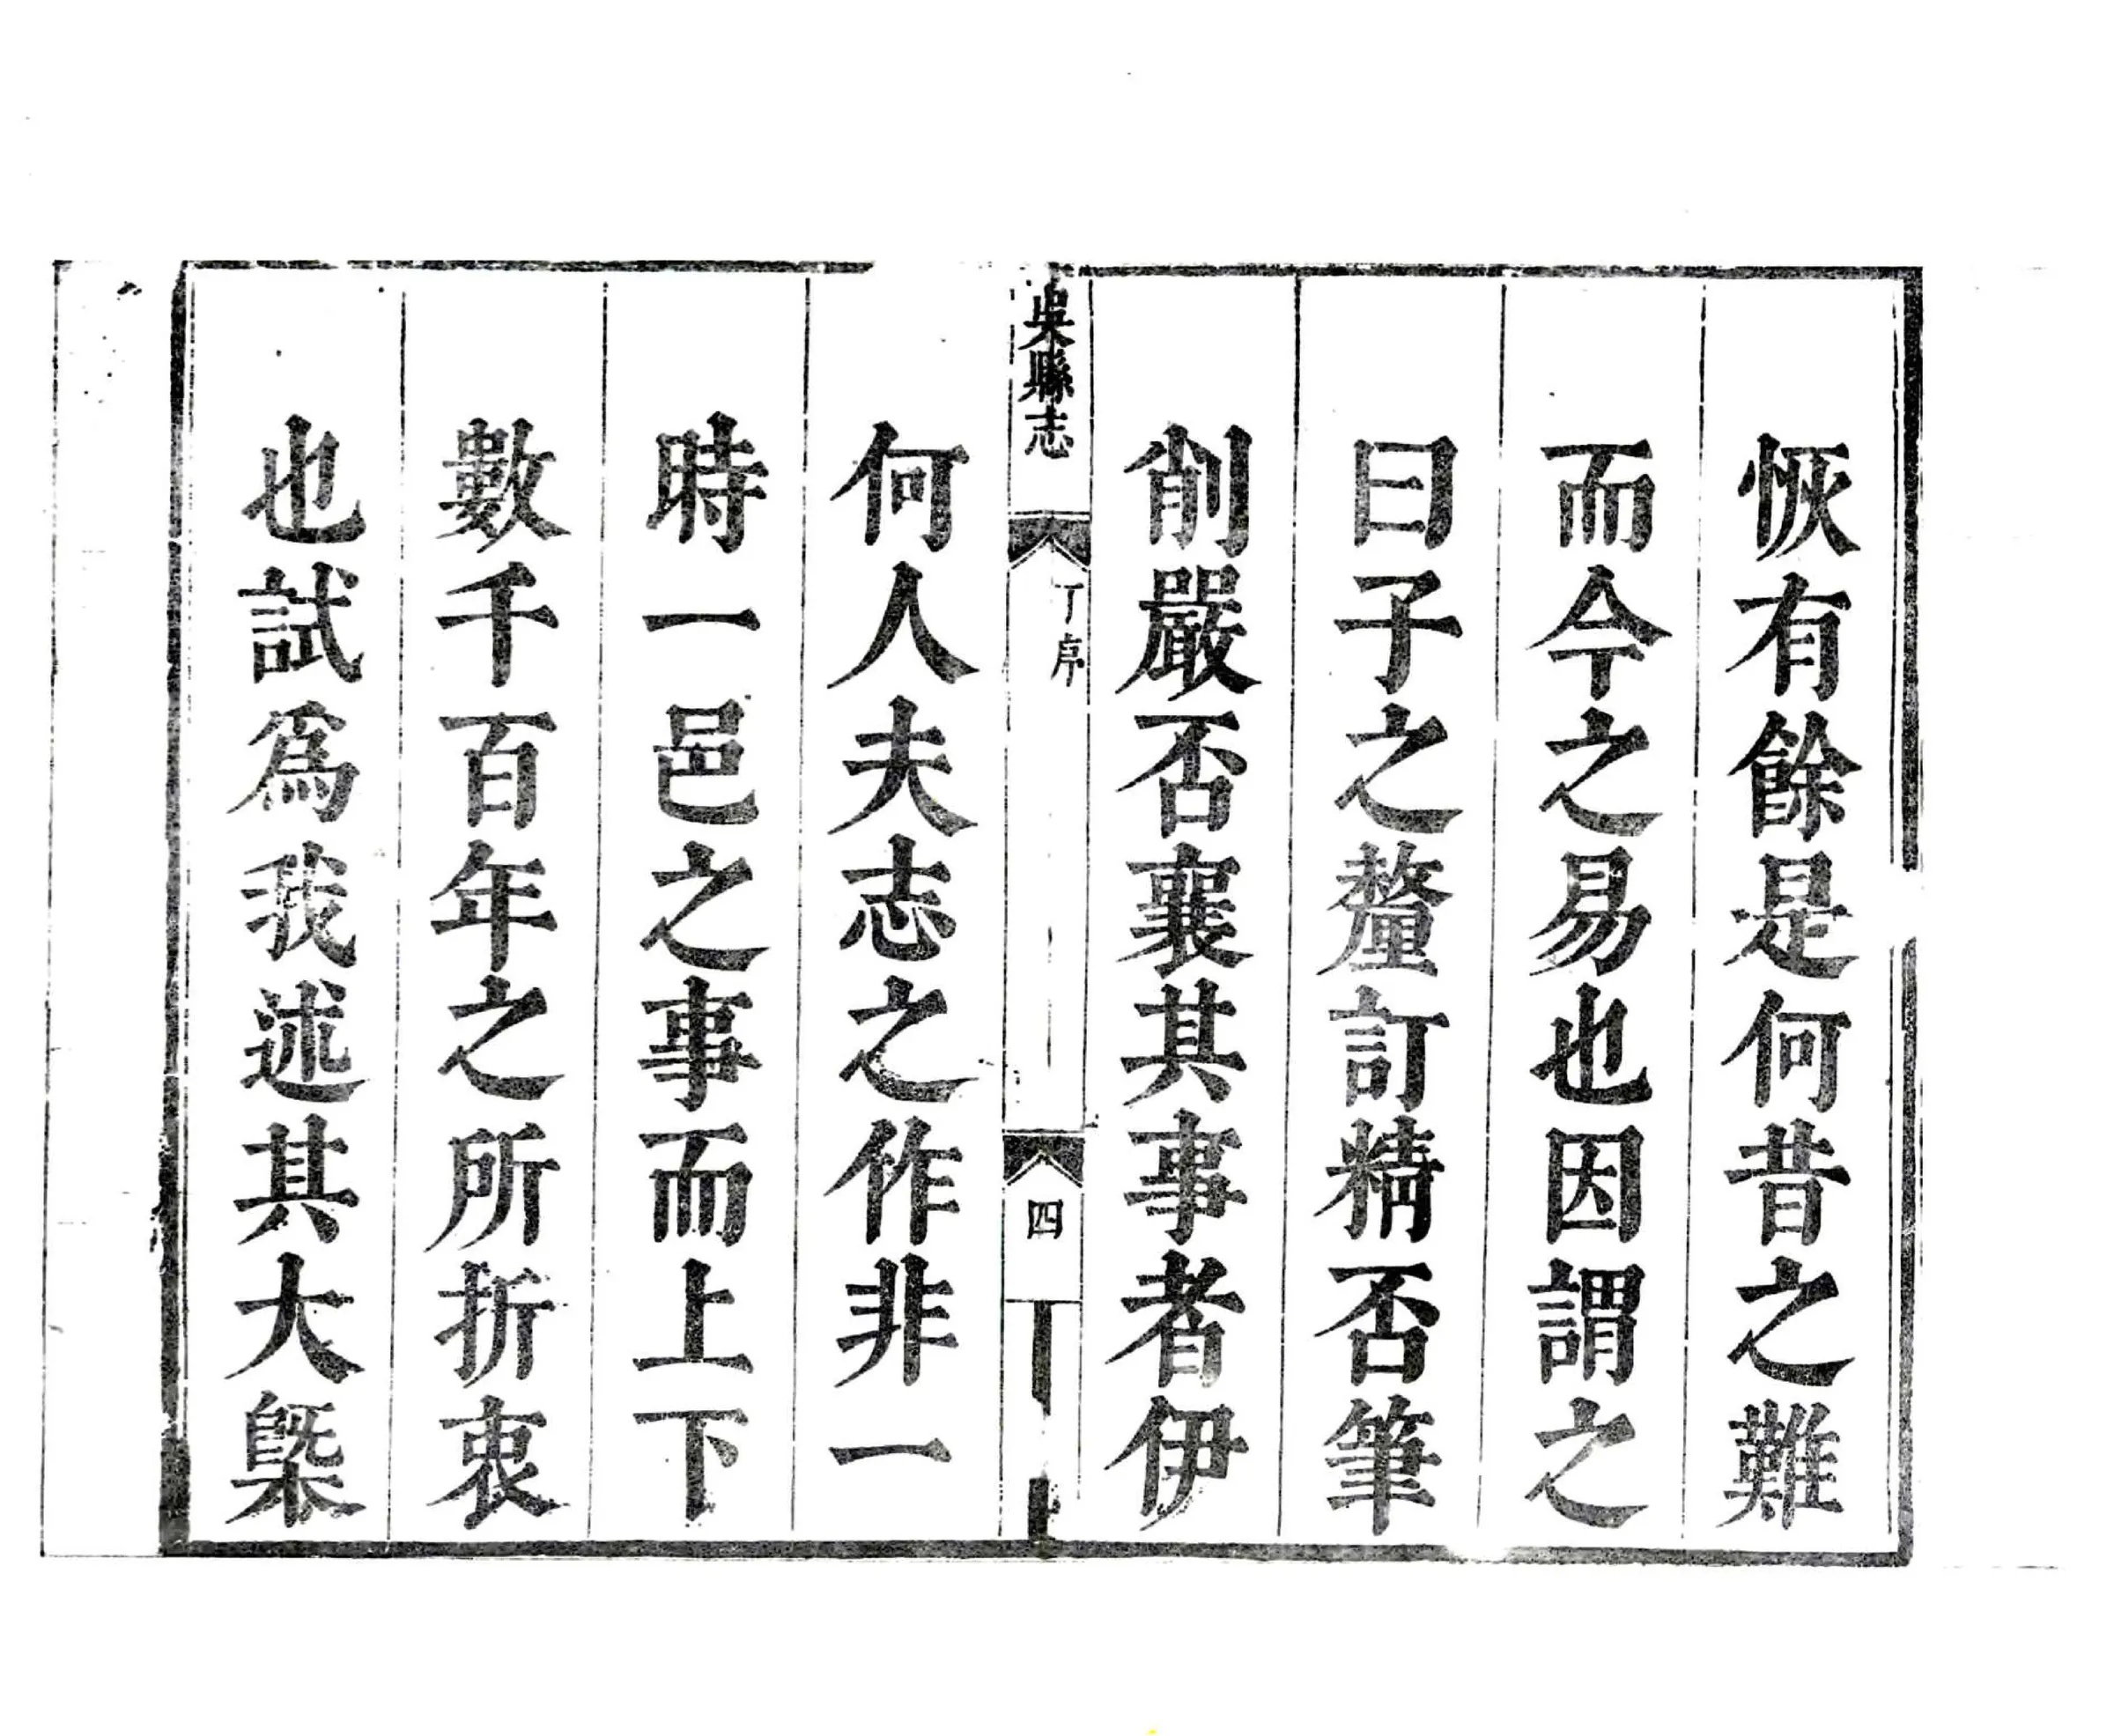 恢有餘是何昔之難
而今之易也因謂之
曰子之釐訂精否筆
削嚴否襄其事者伊
吳縣志
丁序
四
何人夫志之作非一
時一邑之事而上下
數千百年之所折衷
也試爲我述其大槩